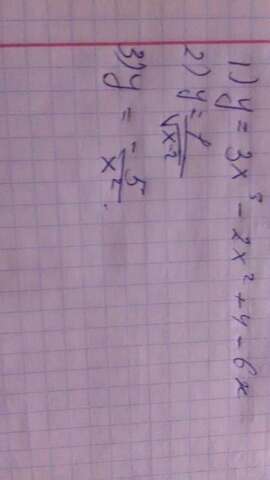 1) y = 3x⁵ - 2x² + 4 - 6x
2) y = 1/√(x-2)
3) y = -5/x²